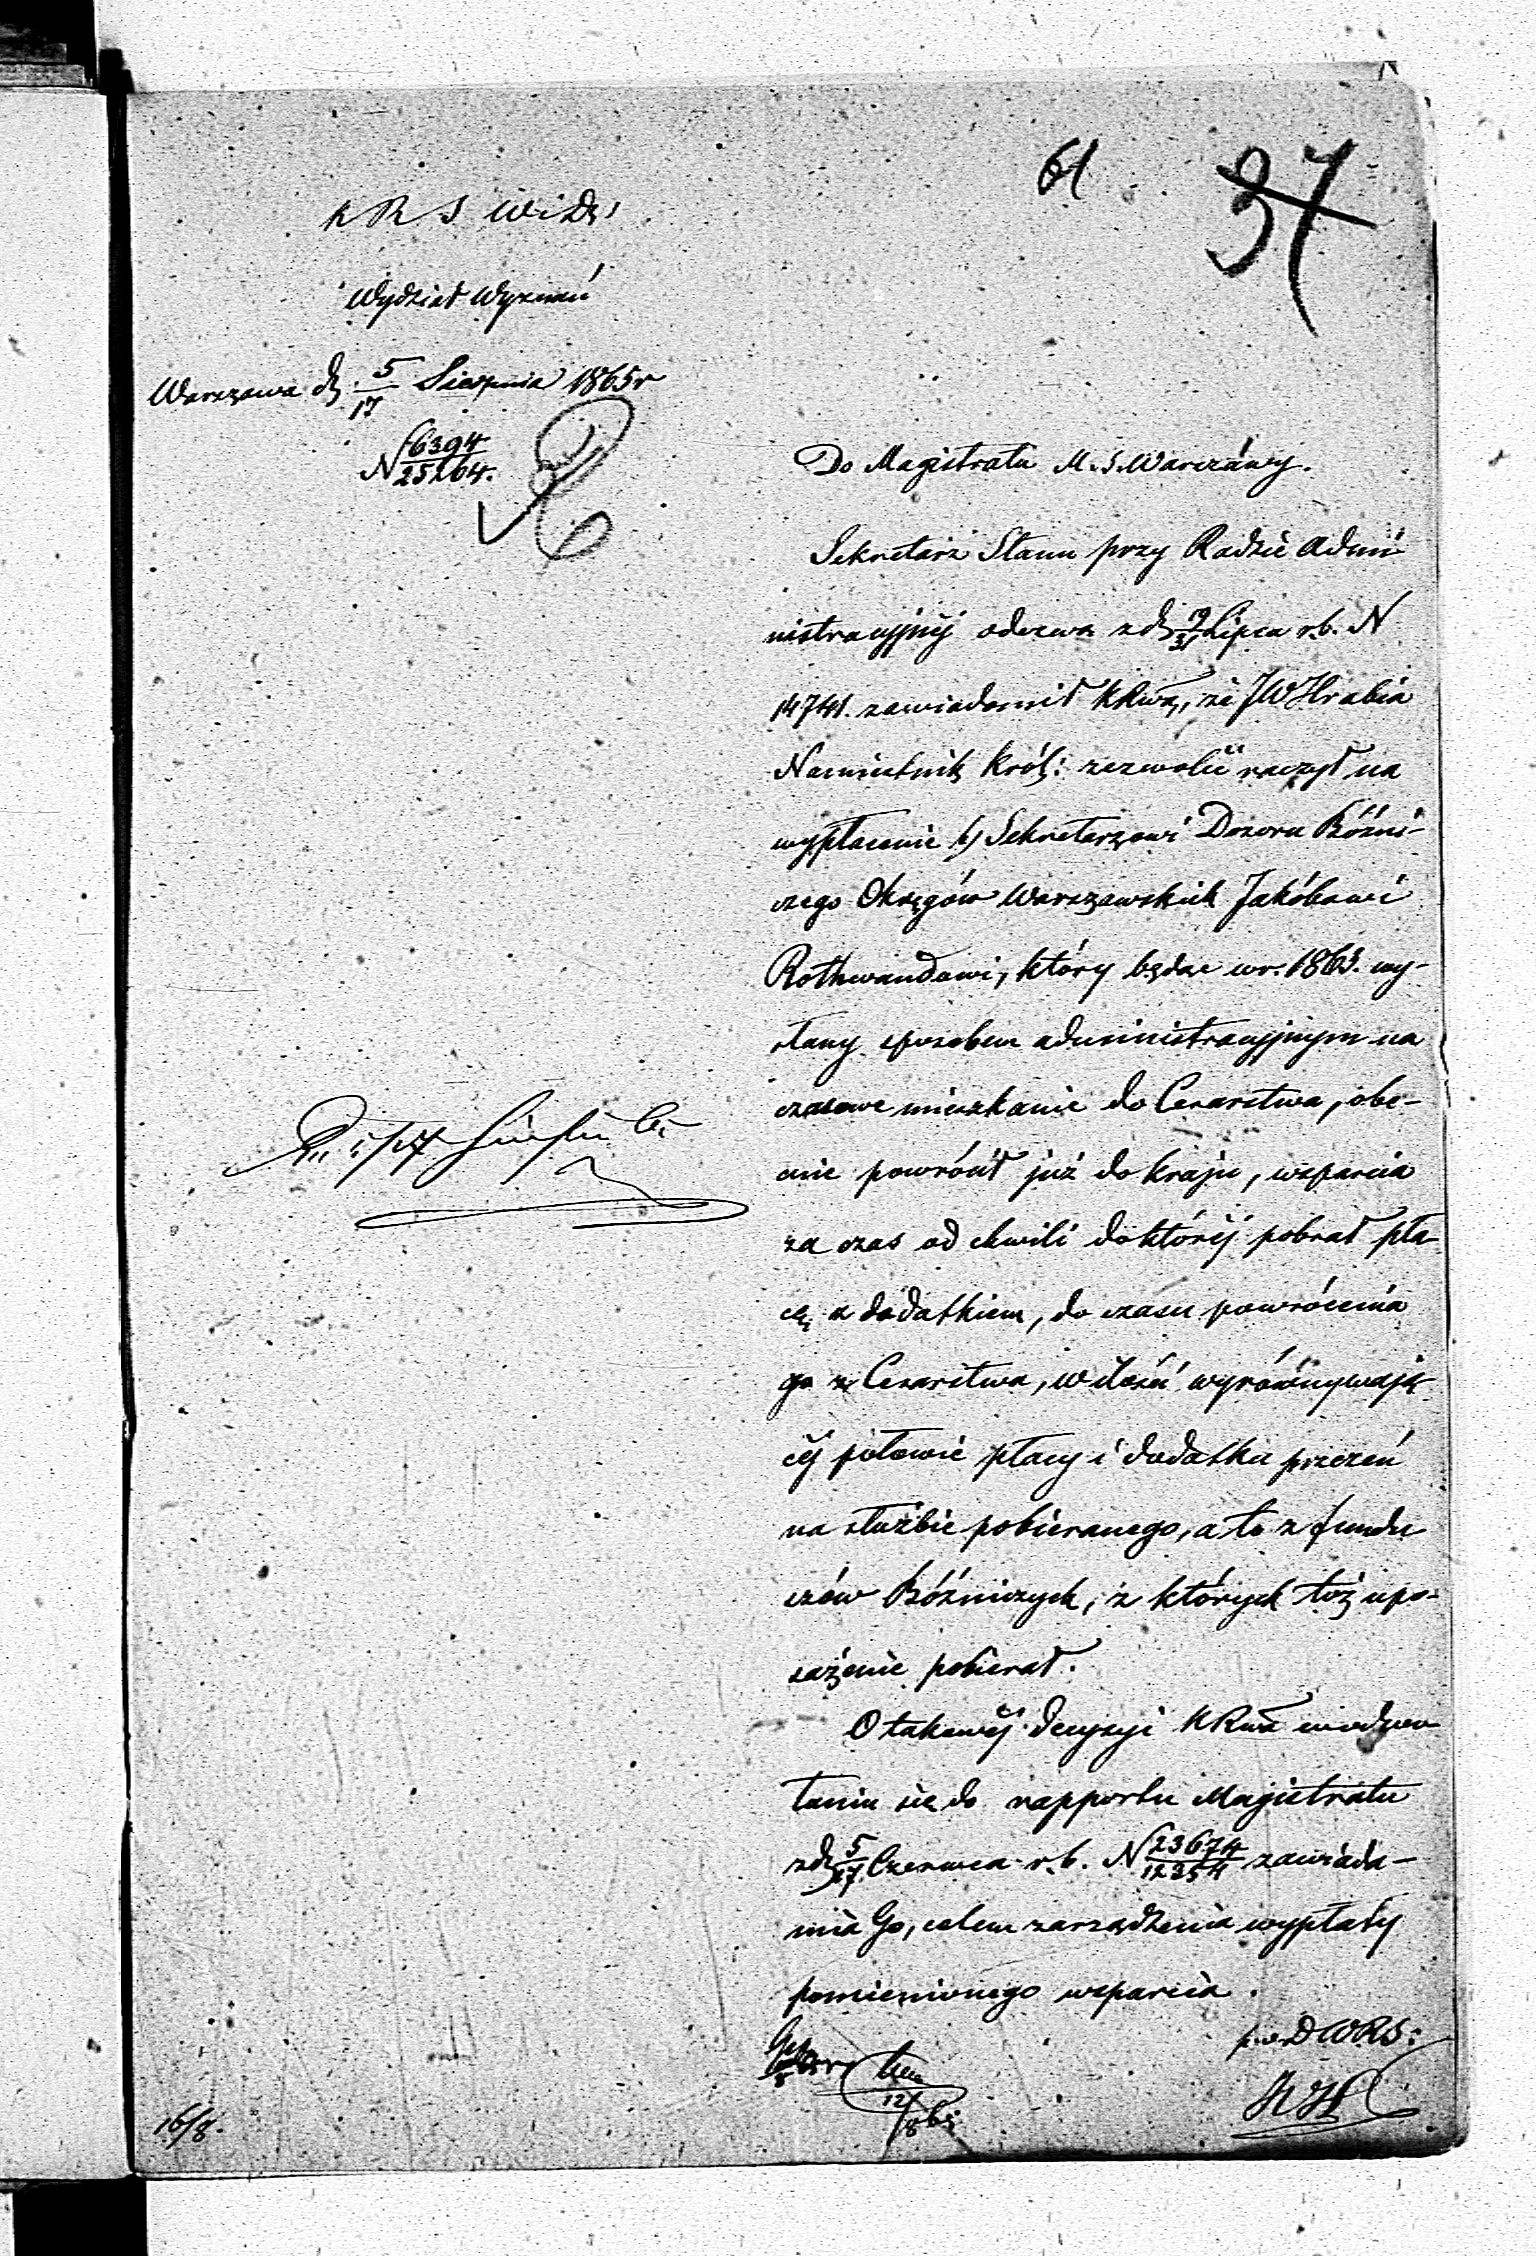 61 37
K R S W i D
Wydział Wyznań
Warszawa d. 5/17 Sierpnia 1865 r
N 6394/25264.
Do Magistratu M. S. Warszawy.
Sekretarz Stanu przy Radzie Admi-
nistracyjnéj odezwą z d. 19/31 Lipca r. b. N
14741. zawiadomił KRwą, że JW Hrabia
Namiestnik Król: zezwolić raczył na
wypłacenie b) Sekretarzowi Dozoru Bóźni-
czego Okręgów Warszawskich Jakóbowi
Rothwandowi, który będąc w r. 1863. wy-
słany sposobem administracyjnym na
czasowe mieszkanie do Cesarstwa, obe-
cnie powrócił już do kraju, wsparcia
za czas od chwili do któréj pobrał pła-
cę z dodatkiem, do czasu powrócenia
go z Cesarstwa, w ilości wyrównywają-
céj połowie płacy i dodatku przezeń
na służbie pobieranego, a to z fundu
szów Bóźniczych, z których toż upo-
sażenie pobierał.
O takowéj decyzyi KRwa w odwo
łaniu się do rapportu Magistratu
z d. 5/17 Czerwca r. b. N 23674/12354 zawiada-
mia Go, celem zarządzenia wypłaty
pomienionego wsparcia.
p. o. D W R S:
12/8 65
16/8.